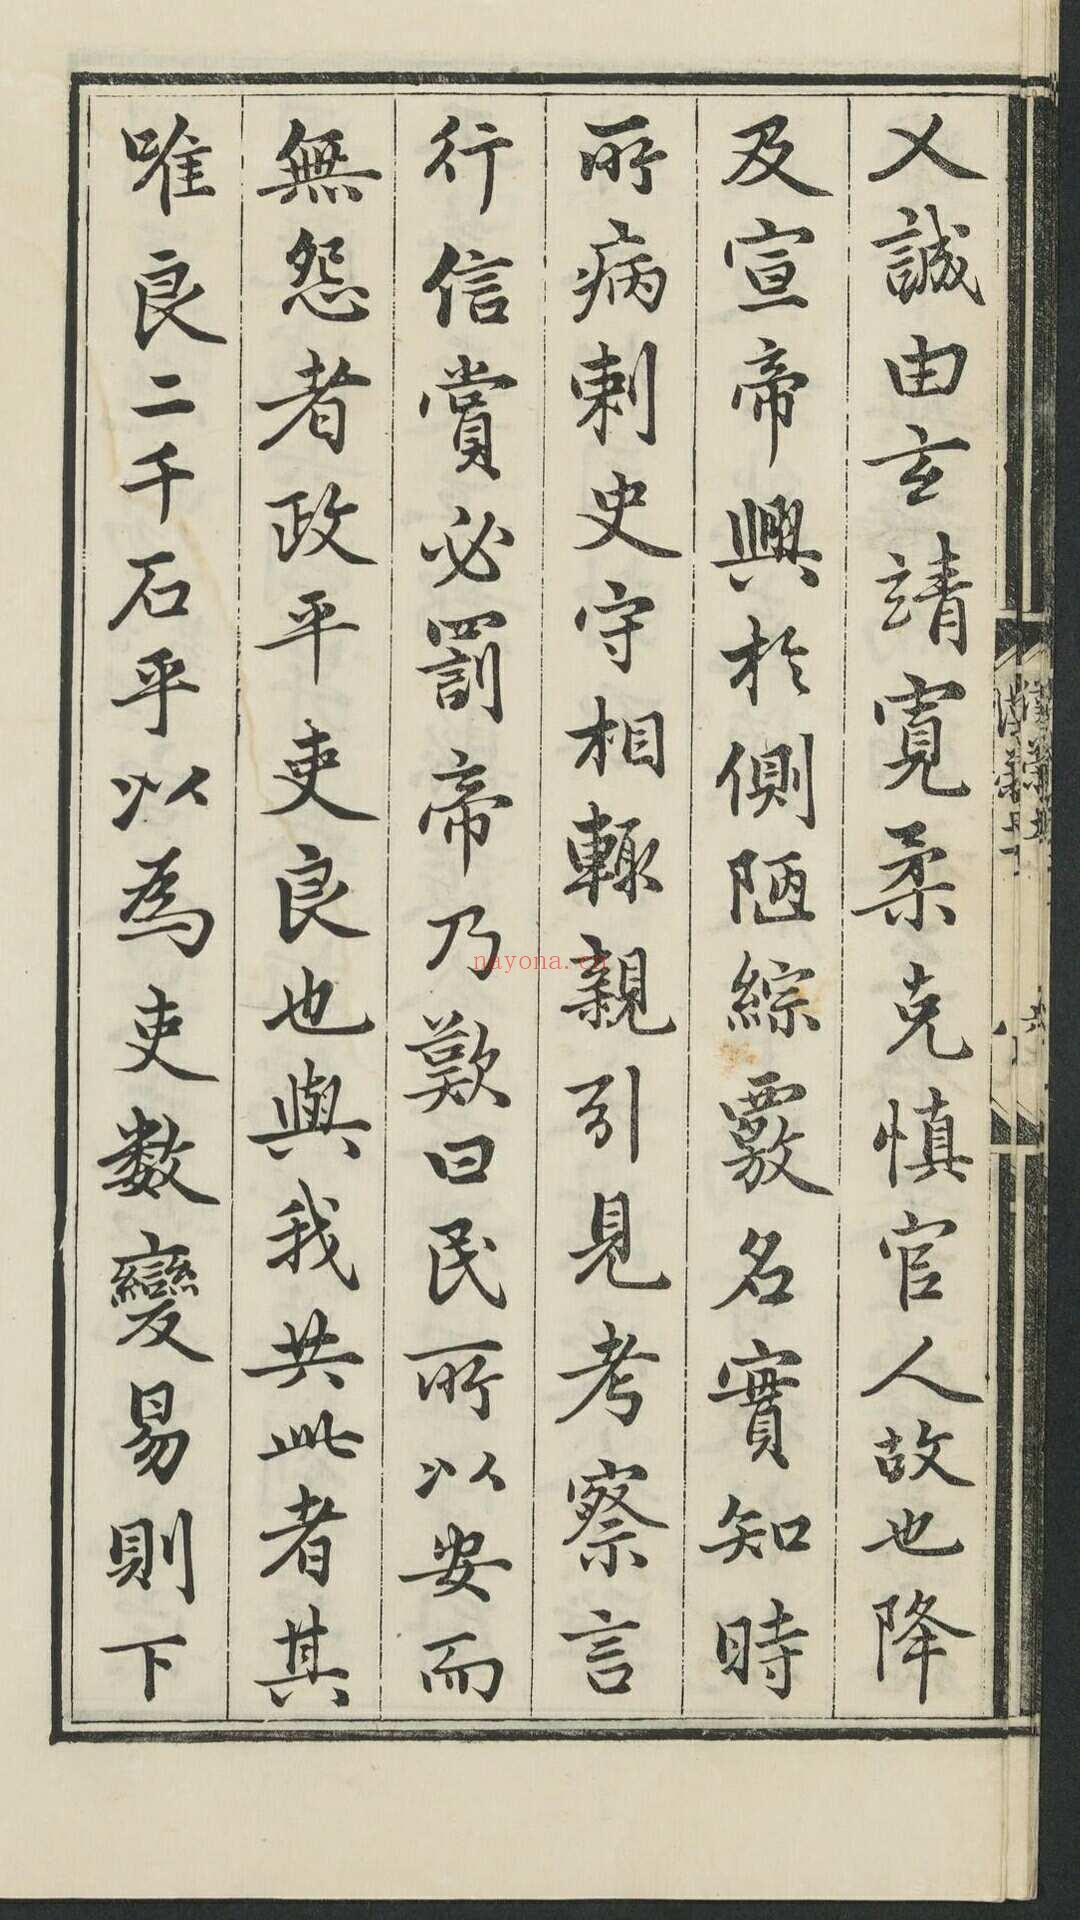 乂誠由玄靖寬柔克慎官人故也降
及宣帝興於側陋綜覈名實知時
所病刺史守相輒親引見考察言
行信賞必罰帝乃歎曰民所以安而
無怨者政平吏良也與我共此者其
唯良二千石乎以為吏數變易則下
nayona.cn